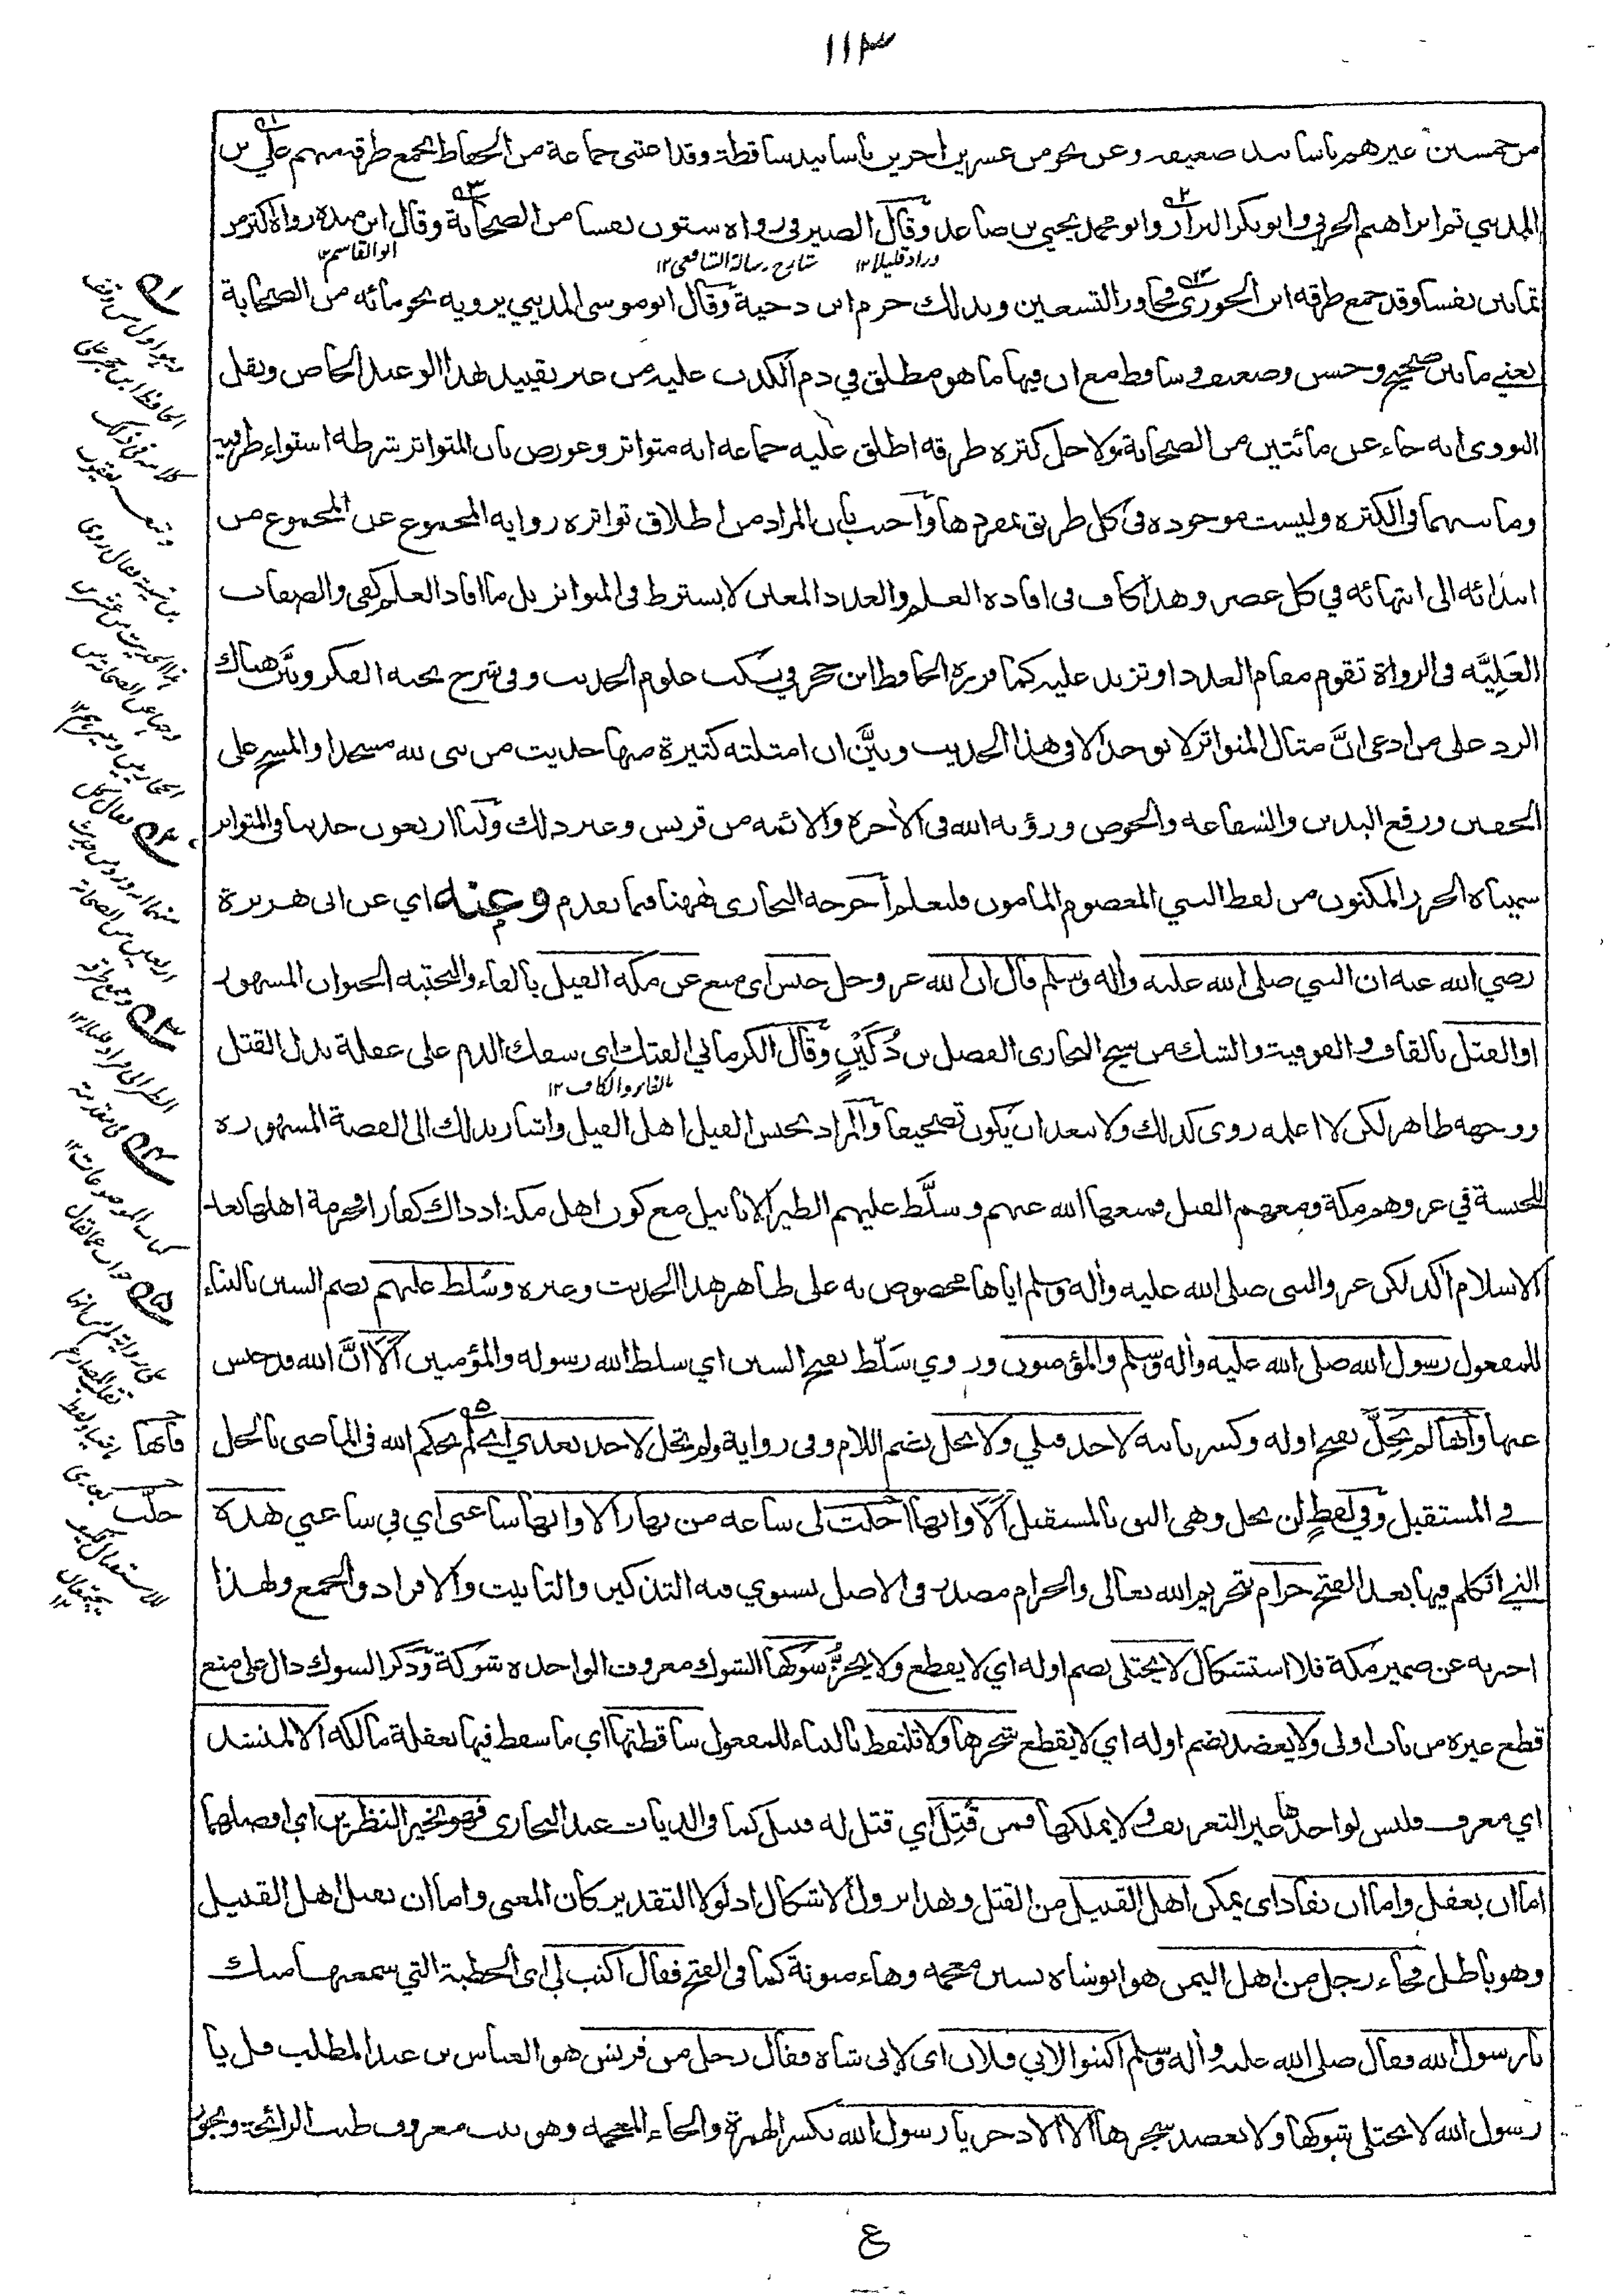 ١١٣
من خمسين غيرهم باسانيد ضعيفه وعن نحو من عشرين اخرين باسانيد ساقطة وقد اعتنى جماعة من الحفاظ بجمع طرقه منهم علي بن
المديني ثم ابراهيم الحربي وابو بكر البزار وابو محمد يحيى بن صاعد وقال الصيرفي رواه ستون نفسا من الصحابة وقال ابن منده رواه اكثر من
وزاد قليلا ١٢ شارح رسالة الشافعي ١٢ ابو القاسم ١٢
ثمانين نفسا وقد جمع طرقه ابن الجوزى فجاوز التسعين وبذلك جزم ابن دحية وقال ابو موسى المديني يرويه نحو مائه من الصحابة
يعني ما بين صحيح وحسن وضعيف وساقط مع ان فيها ما هو مطلق في ذم الكذب عليه من غير تقييد لهذا الوعيد الخاص ونقل
النووى انه جاء عن مائتين من الصحابة ولاجل كثرة طرقه اطلق عليه جماعه انه متواتر وعورض بان المتواتر شرطه استواء طرفيه
وما بينهما في الكثره وليست موجوده في كل طريق بمفردها وأجيب بان المراد من اطلاق تواتره روايه المجموع عن المجموع من
ابتدائه الى انتهائه في كل عصر وهذا كاف فى افاده العلم والعدد المعين لا يشترط فى المتواتر بل ما افاد العلم كفى والصفات
العَلِيَّه فى الرواة تقوم مقام العدد او تزيد عليه كما قرره الحافظ ابن حجر في نكت علوم الحديث وفى شرح نخبه الفكر وبيَّن هناك
الرد على من ادعى انَّ مثال المتواتر لا يوجد الا فى هذا الحديث وبيَّن ان امثلته كثيرة منها حديث من بنى لله مسجدا والمسح على
الخفين ورفع اليدين والشفاعه والحوض ورؤيه الله فى الأخرة والائمه من قريش وغير ذلك ولنا اربعون حديثا فى المتواتر
سميناه الحرز المكنون من لفظ النبي المعصوم المامون فليعلم أخرجه البخارى ههنا فيما تقدم وعنه اي عن ابى هريرة
رضي الله عنه ان النبي صلى الله عليه وأله وسلم قال ان الله عز وجل حبس اى منع عن مكه الفيل بالفاء والتحتيه الحيوان المشهور
او القتل بالقاف والفوقية والشك من شيخ البخارى الفضل بن دُكَيْنٍ وقال الكرماني الفتك اى سفك الدم على غفلة بدل القتل
بالفاء والكاف ١٢
ووجهه ظاهر لكن لا اعلمه روى كذلك ولا يبعد ان يكون تصحيفا والمراد بحبس الفيل اهل الفيل واشار بذلك الى القصة المشهوره
للحبشة في غزوهم مكة ومعهم الفيل فمنعها الله عنهم وسلَّط عليهم الطير الابابيل مع كون اهل مكة اذ ذاك كفارا فحرمة اهلها بعد
الاسلام اكد لكن غزو النبى صلى الله عليه وأله وسلم اياها مخصوص به على ظاهر هذا الحديث وغيره وسُلط عليهم بضم السين بالبناء
للمفعول رسول الله صلى الله عليه وأله وسلم والمؤمنون وروي سَلّط بفتح السين اي سلط الله رسوله والمؤمنين ألا انَّ الله قد حبس
عنها وأنها لم تَحِلَّ بفتح اوله وكسر ثانيه لاحد قبلي ولا تحل بضم اللام وفى رواية ولم تحل لاحد بعدي اي لم يحكم الله فى الماضى بالحل
في المستقبل وفي لفظٍ لن تحل وهى اليق بالمستقبل ألا وانها أحلت لى ساعه من نهار ألا وانها ساعتى اي في ساعتي هذه
التي اتكلم فيها بعد الفتح حرام بتحريم الله تعالى والحرام مصدر فى الاصل يستوي فيه التذكير والتانيث والافراد والجمع ولهذا
اخبر به عن ضمير مكة فلا استشكال لا يختلى بضم اوله اي لا يقطع ولا يجزُّ شوكها الشوك معروف الواحده شوكة وذكر الشوك دال على منع
قطع غيره من باب اولى ولا يعضد بضم اوله اي لا يقطع شجرها ولا تلتقط بالبناء للمفعول ساقطتها اي ما سقط فيها بغفلة مالكه الا لمنشد
اي معرف فليس لواجدها غير التعريف ولا يملكها فمن قُتِلَ اي قتل له قتيل كما فى الديات عند البخارى فهو بخير النظرين اي افضلهما
اما ان يعقل واما ان يقاد اى يمكن اهل القتيل من القتل وبهذا يزول الاشكال اذ لولا التقدير كان المعنى واما ان يقتل اهل القتيل
وهو باطل فجاء رجل من اهل اليمن هو ابو شاه بشين معجمه وهاء منونة كما فى الفتح فقال اكتب لي اى الخطبة التي سمعتها منك
يا رسول الله فقال صلى الله عليه وأله وسلم اكتبوا لابي فلان اى لابى شاه فقال رجل من قريش هو العباس بن عبد المطلب قل يا
رسول الله لا يختلى شوكها ولا يعضد شجرها الا الاذخر يا رسول الله بكسر الهمزة والخاء المعجمه وهو نبت معروف طيب الرائحة ويجوز
ع